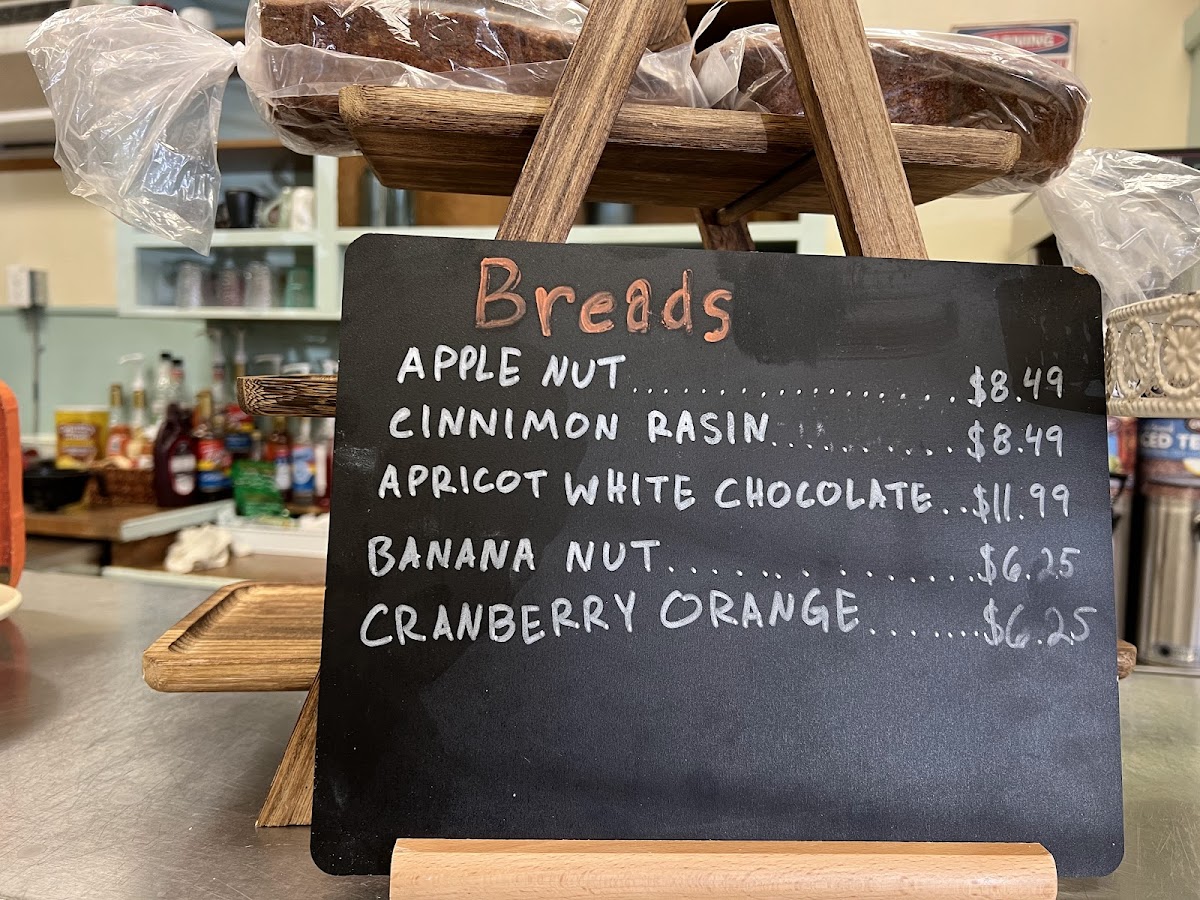 Breads
APPLE NUT.................... $8.49
CINNIMON RASIN............ $8.49
APRICOT WHITE CHOCOLATE..$11.99
BANANA NUT..................$6.25
CRANBERRY ORANGE........$6.25